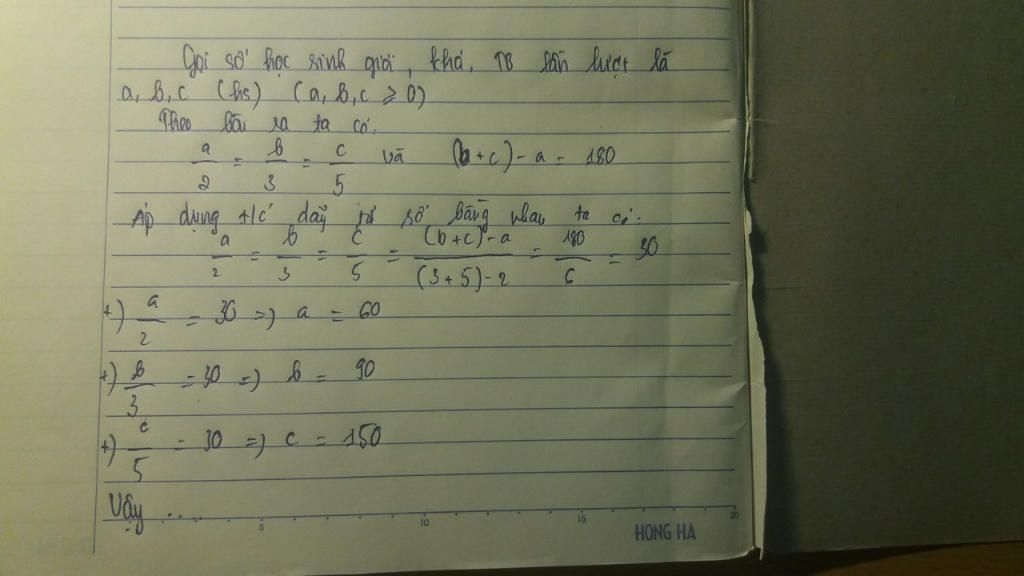 Gọi số học sinh giỏi, khá, TB lần lượt là
a, b, c (hs) (a, b, c ⩾ 0)
Theo bài ra ta có:
a/2 = b/3 = c/5 và (b+c) - a = 180
Áp dụng t/c dãy tỉ số bằng nhau ta có:
a/2 = b/3 = c/5 = (b+c)-a/(3+5)-2 = 180/6 = 30
+) a/2 = 30 => a = 60
+) b/3 = 30 => b = 90
+) c/5 = 30 => c = 150
Vậy ....
5 10 15 20
HONG HA